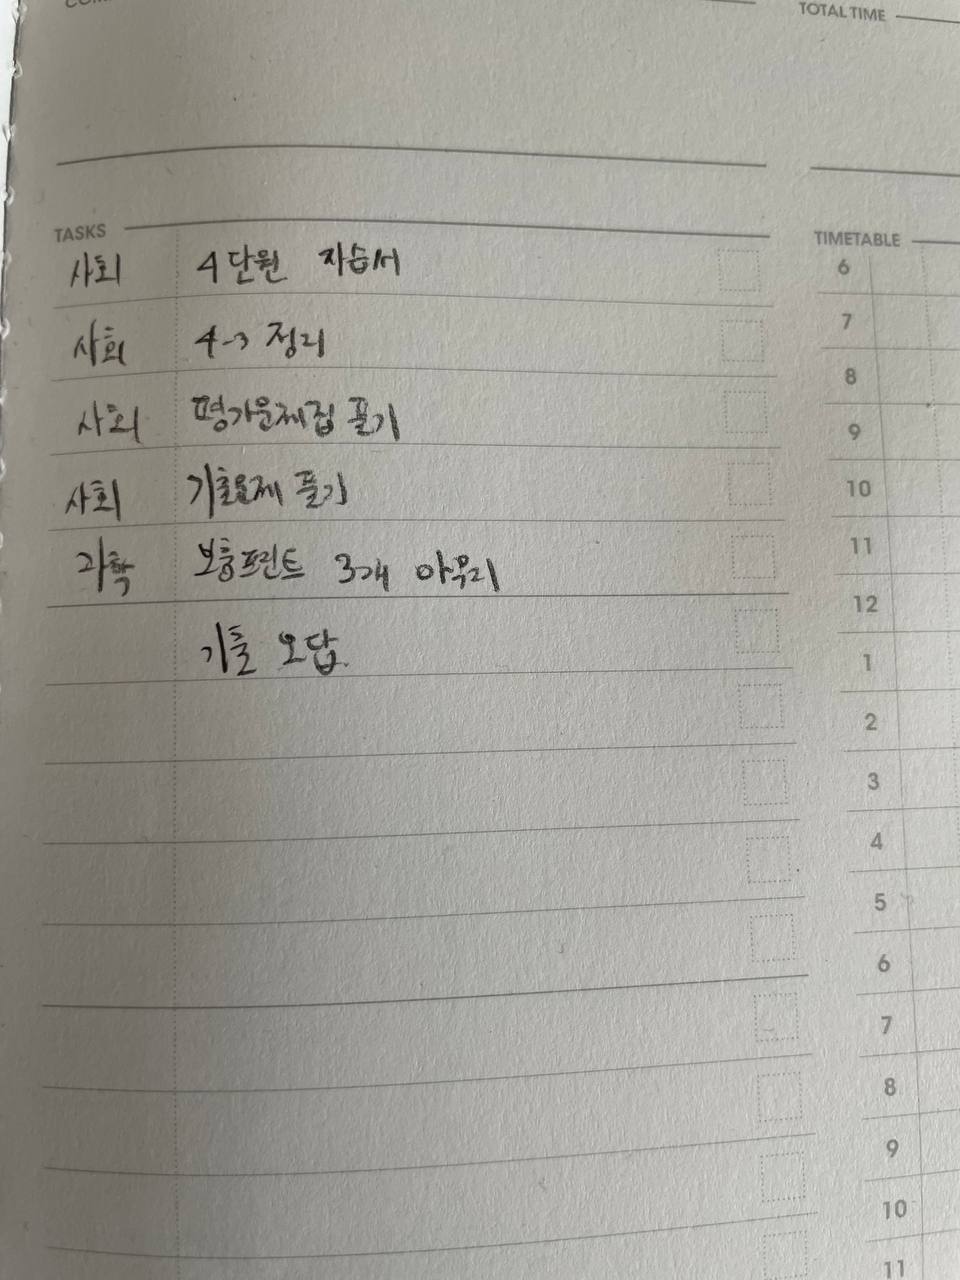 TOTAL TIME
TASKS
사회 4단원 자습서
사회 4-3 정리
사회 평가문제집 풀기
사회 기출문제 풀기
과학 보충프린트 3개 마무리
기출 오답.
TIMETABLE
6
7
8
9
10
11
12
1
2
3
4
5
6
7
8
9
10
11